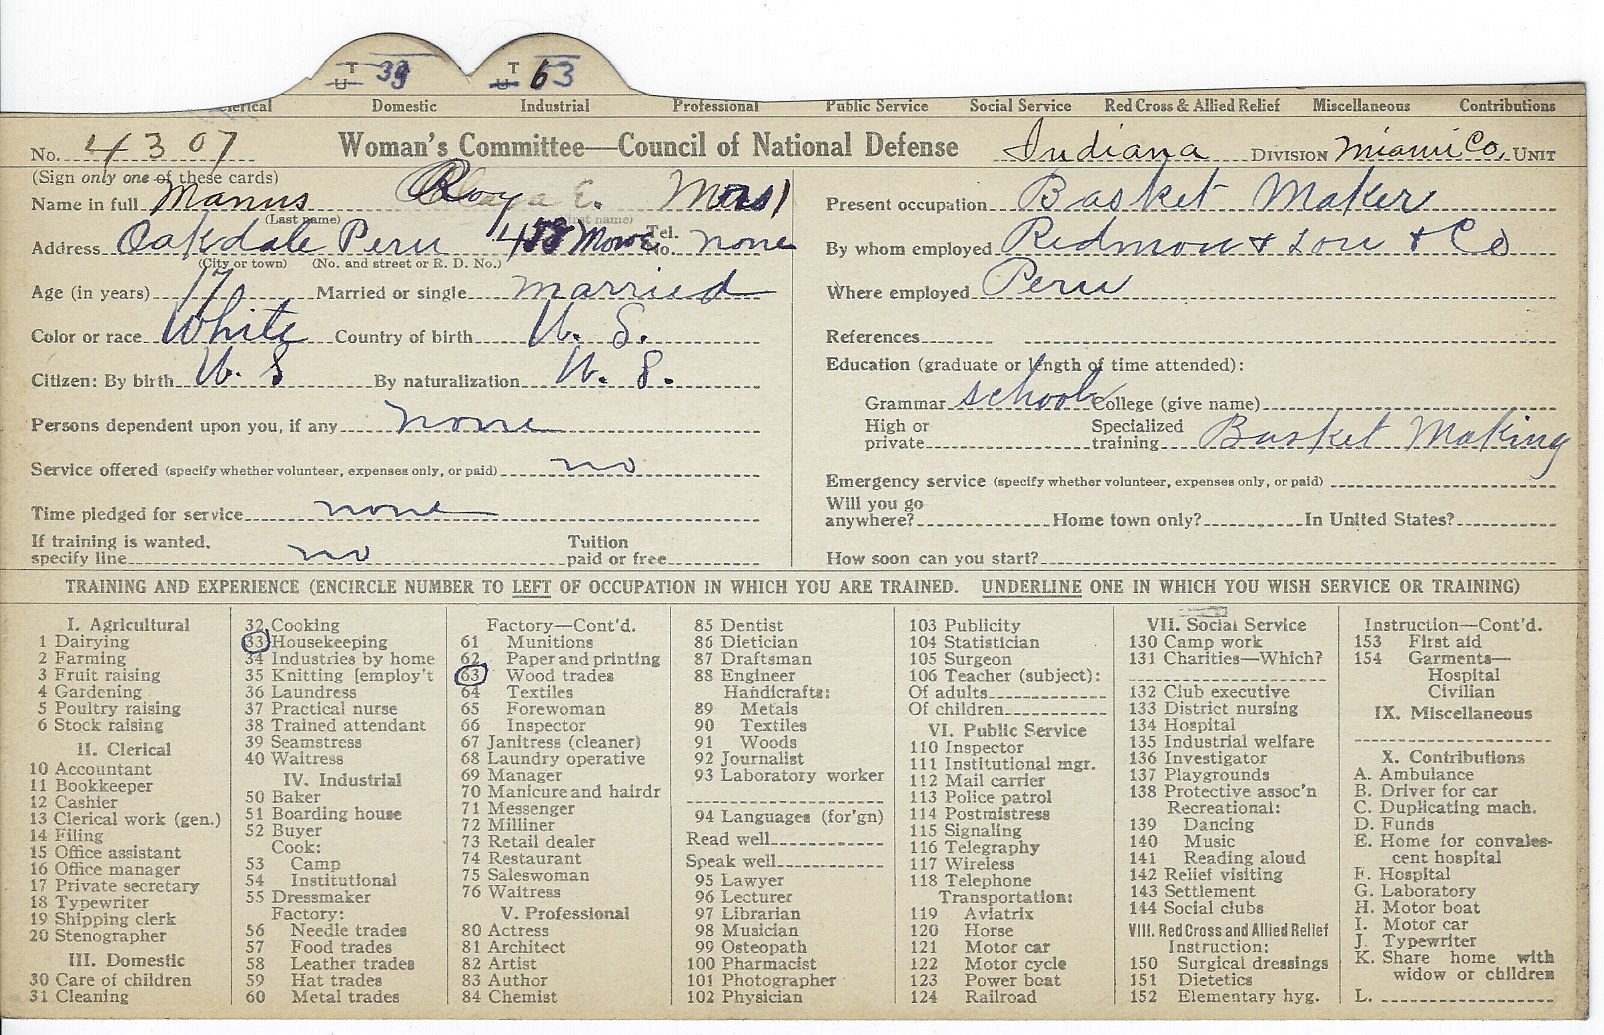 T 33 T 63
U U
Clerical Domestic Industrial Professional Public Service Social Service Red Cross & Allied Relief Miscellaneous Contributions
No. 4307 Woman's Committee—Council of National Defense Indiana DIVISION Miami Co. UNIT
(Sign only one of these cards)
Name in full Manus E.
(Last name) (First name)
Address Oakdale Peru Tel. No. none
(City or town) (No. and street or R. D. No.)
Age (in years) 17 Married or single married
Color or race White Country of birth U. S.
Citizen: By birth U. S By naturalization U. S.
Persons dependent upon you, if any none
Service offered (specify whether volunteer, expenses only, or paid) no
Time pledged for service none
If training is wanted, specify line no Tuition paid or free
Present occupation Basket Maker
By whom employed Redmon & & Co
Where employed Peru
References
Education (graduate or length of time attended):
Grammar school College (give name)
High or private Specialized training Basket Making
Emergency service (specify whether volunteer, expenses only, or paid)
Will you go anywhere? Home town only? In United States?
How soon can you start?
TRAINING AND EXPERIENCE (ENCIRCLE NUMBER TO LEFT OF OCCUPATION IN WHICH YOU ARE TRAINED. UNDERLINE ONE IN WHICH YOU WISH SERVICE OR TRAINING)
I. Agricultural
1 Dairying
2 Farming
3 Fruit raising
4 Gardening
5 Poultry raising
6 Stock raising
II. Clerical
10 Accountant
11 Bookkeeper
12 Cashier
13 Clerical work (gen.)
14 Filing
15 Office assistant
16 Office manager
17 Private secretary
18 Typewriter
19 Shipping clerk
20 Stenographer
III. Domestic
30 Care of children
31 Cleaning
32 Cooking
33 Housekeeping
34 Industries by home
35 Knitting [employ't
36 Laundress
37 Practical nurse
38 Trained attendant
39 Seamstress
40 Waitress
IV. Industrial
50 Baker
51 Boarding house
52 Buyer
Cook:
53 Camp
54 Institutional
55 Dressmaker
Factory:
56 Needle trades
57 Food trades
58 Leather trades
59 Hat trades
60 Metal trades
Factory—Cont'd.
61 Munitions
62 Paper and printing
63 Wood trades
64 Textiles
65 Forewoman
66 Inspector
67 Janitress (cleaner)
68 Laundry operative
69 Manager
70 Manicure and hairdr
71 Messenger
72 Milliner
73 Retail dealer
74 Restaurant
75 Saleswoman
76 Waitress
V. Professional
80 Actress
81 Architect
82 Artist
83 Author
84 Chemist
85 Dentist
86 Dietician
87 Draftsman
88 Engineer
Handicrafts:
89 Metals
90 Textiles
91 Woods
92 Journalist
93 Laboratory worker
94 Languages (for'gn)
Read well
Speak well
95 Lawyer
96 Lecturer
97 Librarian
98 Musician
99 Osteopath
100 Pharmacist
101 Photographer
102 Physician
103 Publicity
104 Statistician
105 Surgeon
106 Teacher (subject):
Of adults
Of children
VI. Public Service
110 Inspector
111 Institutional mgr.
112 Mail carrier
113 Police patrol
114 Postmistress
115 Signaling
116 Telegraphy
117 Wireless
118 Telephone
Transportation:
119 Aviatrix
120 Horse
121 Motor car
122 Motor cycle
123 Power boat
124 Railroad
VII. Social Service
130 Camp work
131 Charities—Which?
132 Club executive
133 District nursing
134 Hospital
135 Industrial welfare
136 Investigator
137 Playgrounds
138 Protective assoc'n
Recreational:
139 Dancing
140 Music
141 Reading aloud
142 Relief visiting
143 Settlement
144 Social clubs
VIII. Red Cross and Allied Relief
Instruction:
150 Surgical dressings
151 Dietetics
152 Elementary hyg.
Instruction—Cont'd.
153 First aid
154 Garments—
Hospital
Civilian
IX. Miscellaneous
X. Contributions
A. Ambulance
B. Driver for car
C. Duplicating mach.
D. Funds
E. Home for convales-
cent hospital
F. Hospital
G. Laboratory
H. Motor boat
I. Motor car
J. Typewriter
K. Share home with
widow or children
L.